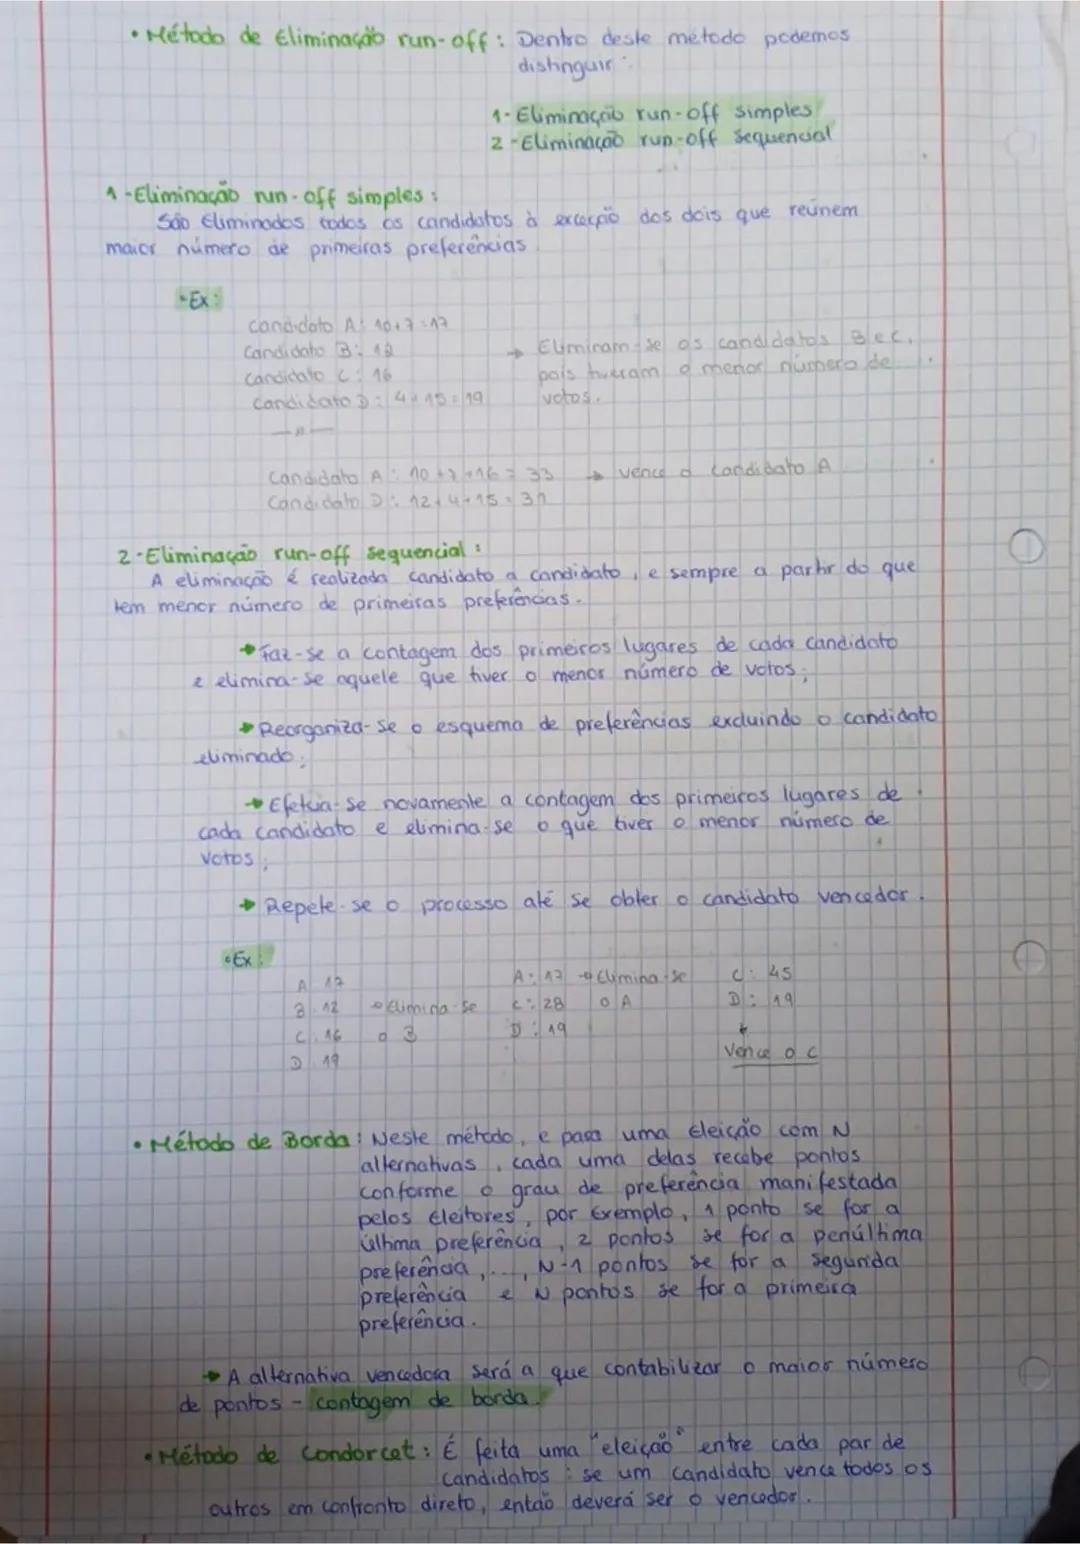 • Método de Eliminação run-off: Dentro deste método podemos
distinguir:
1- Eliminação run-off simples
2 - Eliminação run-off Sequencial
1 - Eliminação run-off simples:
São Eliminados todos os candidatos à exceção dos dois que reúnem
maior número de primeiras preferências
• Ex:
Candidato A: 10+7=17
Candidato B: 12
Candidato C: 16
Candidato D: 4+15=19
→ Eliminam-se os candidatos B e C,
pois tiveram o menor número de
votos.
—//—
Candidato A: 10+7+16=33 → vence o candidato A
Candidato D: 12+4+15=31
2 - Eliminação run-off Sequencial:
A eliminação é realizada candidato a candidato, e sempre a partir do que
tem menor número de primeiras preferências.
→ Faz-se a contagem dos primeiros lugares de cada candidato
e elimina-se aquele que tiver o menor número de votos;
→ Reorganiza-se o esquema de preferências excluindo o candidato
eliminado;
→ Efetua-se novamente a contagem dos primeiros lugares de
cada candidato e elimina-se o que tiver o menor número de
votos;
→ Repete-se o processo até se obter o candidato vencedor.
• Ex:
A 17
B 12 → Elimina-se
C 16 o B
D 19
A: 17 → Elimina-se
C: 28 o A
D: 19
C: 45
D: 19
↓
Vence o C
• Método de Borda: Neste método, e para uma Eleição com N
alternativas, cada uma delas recebe pontos
conforme o grau de preferência manifestada
pelos Eleitores, por Exemplo, 1 ponto se for a
última preferência, 2 pontos se for a penúltima
preferência, ..., N-1 pontos se for a segunda
preferência e N pontos se for a primeira
preferência.
→ A alternativa vencedora será a que contabilizar o maior número
de pontos - contagem de borda.
• Método de Condorcet: É feita uma "eleição" entre cada par de
Candidatos: se um candidato vence todos os
outros em confronto direto, então deverá ser o vencedor.